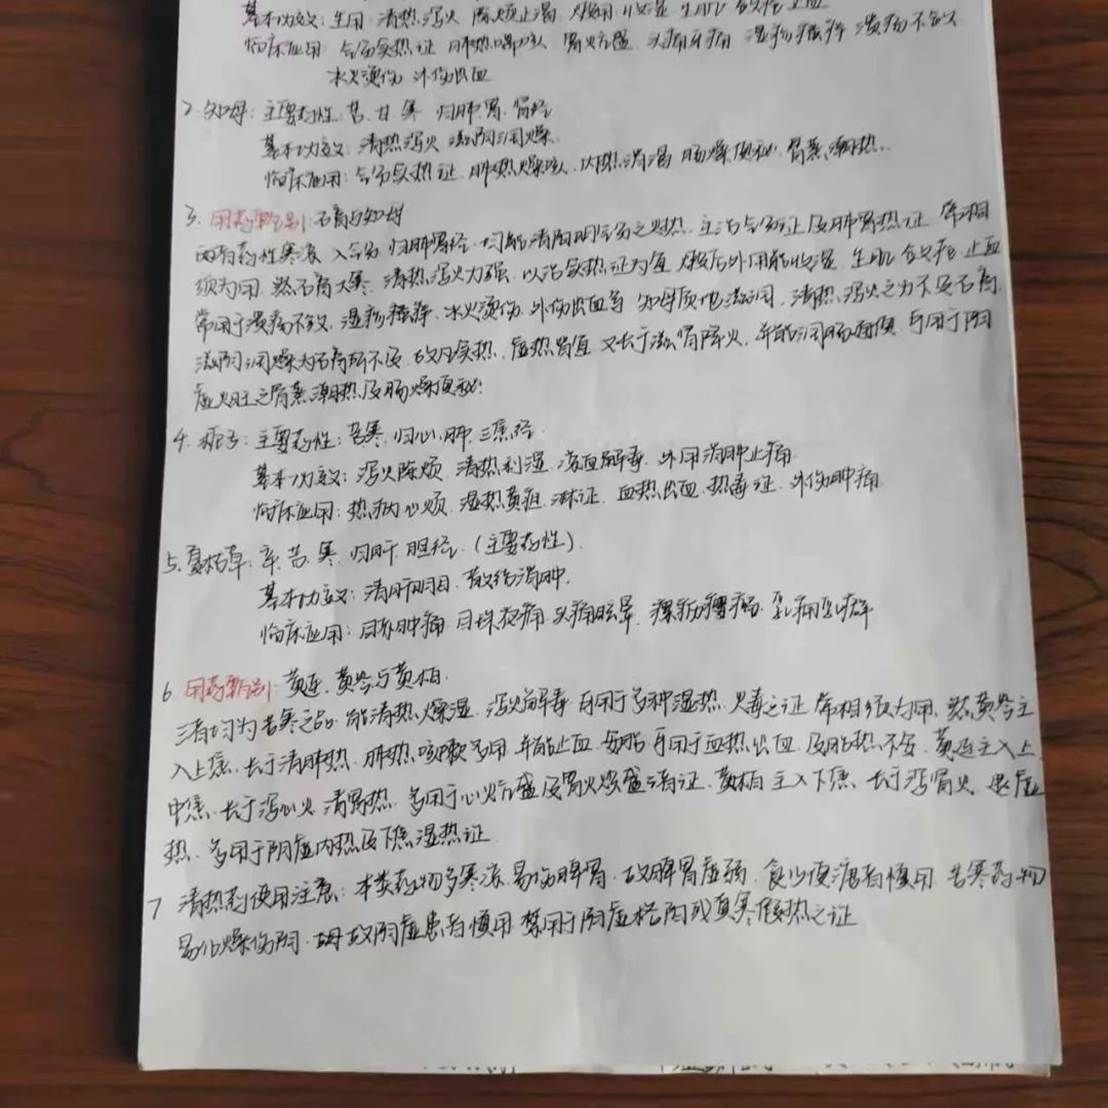 基本功效：生用：清热泻火 除烦止渴 煅用 收湿 生肌 敛疮 止血
临床应用 气分实热证 肺热喘咳 胃火亢盛 头痛牙痛 湿疹瘙痒 溃疡不敛
水火烫伤 外伤出血
2 知母：主要药性：苦 甘 寒 归肺 胃 肾经
基本功效：清热泻火 滋阴润燥
临床应用：气分实热证 肺热燥咳 内热消渴 肠燥便秘 骨蒸潮热
3. 用药鉴别：石膏与知母
两者药性寒凉 入气分 归肺胃经 均能清阳明气分之热 主治气分证及肺胃热证 常相
须为用 然石膏大寒 清热泻火力强 以治实热证为宜 煅后外用能收湿 生肌 敛疮 止血
常用于溃疡不敛 湿疹瘙痒 水火烫伤 外伤出血等 知母质地滋润 清热泻火之力不及石膏
滋阴润燥为石膏所不及 故凡实热、虚热皆宜 又长于滋肾降火，并能润肠通便 可用于阴
虚火旺之骨蒸潮热及肠燥便秘
4. 栀子：主要药性：苦寒 归心 肺 三焦经
基本功效：泻火除烦 清热利湿 凉血解毒 外用消肿止痛
临床应用：热病心烦 湿热黄疸 淋证 血热出血 热毒证 外伤肿痛
5. 夏枯草：辛 苦 寒 归肝 胆经（主要药性）
基本功效：清肝明目 散结消肿
临床应用：目赤肿痛 目珠夜痛 头痛眩晕 瘰疬瘿瘤 乳痈乳癖
6 用药鉴别：黄连、黄芩与黄柏
三者均为苦寒之品 能清热燥湿 泻火解毒 可用于多种湿热 火毒之证 常相须为用 然黄芩主
入上焦 长于清肺热 肺热咳嗽多用 并能止血 安胎 可用于血热出血 及胎热不安 黄连主入上
中焦 长于泻心火 清胃热 多用于心火亢盛及胃火炽盛诸证 黄柏主入下焦 长于泻肾火 退虚
热 多用于阴虚内热及下焦湿热证
7 清热药使用注意：本类药物多寒凉 易伤脾胃 故脾胃虚弱 食少便溏者慎用 苦寒药物
易化燥伤阴 故阴虚患者慎用 禁用于阴盛格阳或真寒假热之证